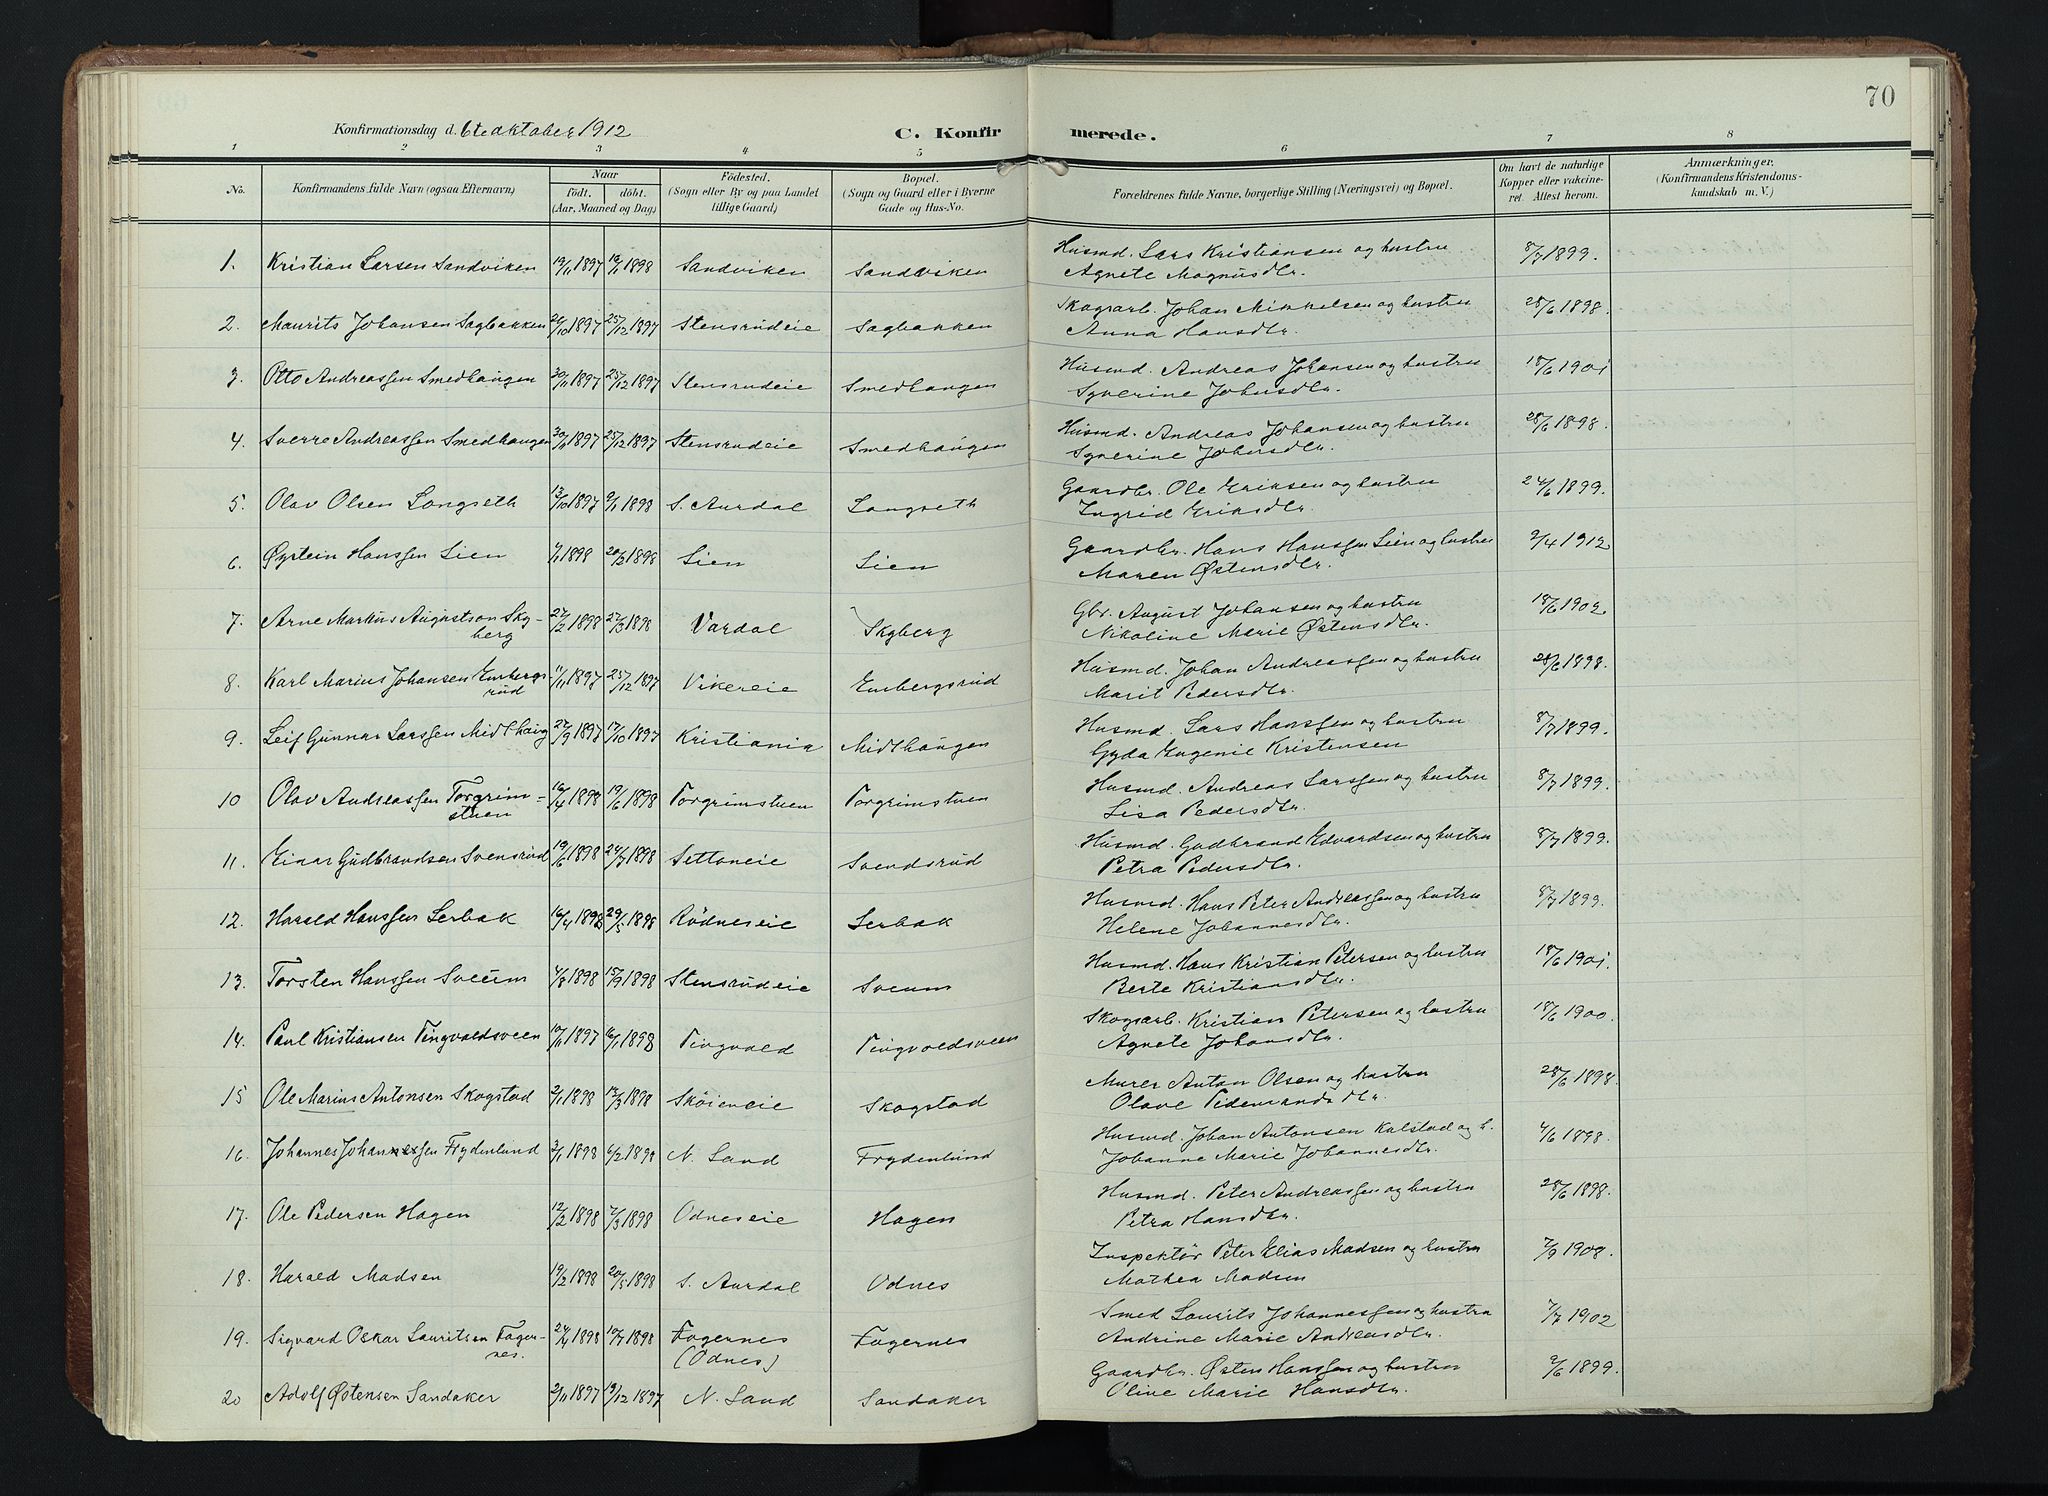 70
Konfirmationsdag d. 6te oktober 1912
C. Konfir merede.
1 2 3 4 5 6 7 8
No. Konfirmandens fulde Navn (ogsaa Efternavn) Naar født. døbt. (Aar, Maaned og Dag) Fødested. (Sogn eller By og paa Landet tillige Gaard) Bopæl. (Sogn og Gaard eller i Byerne Gade og Hus-No. Forældrenes fulde Navne, borgerlige Stilling (Næringsvei) og Bopæl. Om havt de naturlige Kopper eller vakcineret. Attest herom. Anmærkninger. (Konfirmandens Kristendomskundskab m. V.)
1. Kristian Larsen Sandviken 19/11 1897 1898 Sandviken Sandviken Husmd. Lars Kristiansen og hustru 8/7 1899.
Agnete Magnusdtr.
2. Maurits Johansen Sagbakken 1897 25/12 1897 Stensrudeie Sagbakken Skogsarb. Johan Mikkelsen og hustru 28/6 1898.
Anna Hansdtr.
3. Otto Andreassen Smedhaugen 30/11 1897 25/12 1897 Stensrudeie Smedhaugen Husmd. Andreas Johansen og hustru 18/6 1901
Syverine Johnsdtr.
4. Sverre Andreassen Smedhaugen 30/11 1897 25/12 1897 Stensrudeie Smedhaugen Husmd. Andreas Johansen og hustru 28/6 1898.
Syverine Johnsdtr.
5. Olav Olsen Langseth 13/10 1897 9/1 1898 S. Aurdal Langseth Gaardbr. Ole Eriksen og hustru 24/6 1899.
Ingrid Eriksdtr.
6. Øystein Hanssen Lien 1898 20/2 1898 Lien Lien Gaardbr. Hans Hanssen Lien og hustru 2/4 1912
Maren Østensdtr.
7. Arne Markus Augustson Sky- 27/2 1898 27/3 1898 Vardal Skyberg Gbr. August Johansen og hustru 18/6 1902
berg Nikoline Marie Østensdtr.
8. Karl Marius Johansen Embergs- 11/11 1897 25/12 1897 Vikereie Embergsrud Husmd. Johan Andreassen og hustru 28/6 1898.
rud Marit Pedersdtr.
9. Leif Gunnar Larssen Midthaug 27/9 1897 17/10 1897 Kristiania Midthaugen Husmd. Lars Hanssen og hustru 8/7 1899.
Gyda Eugenie Kristensen
10 Olav Andreassen Torgrim- 16/4 1898 19/6 1898 Torgrimstuen Torgrimstuen Husmd. Andreas Larssen og hustru 8/7 1899.
stuen Lisa Pedersdtr.
11. Einar Gudbrandsen Svensrud 19/6 1898 24/7 1898 Settoneie Svendsrud Husmd. Gudbrand Edvardsen og hustru 8/7 1899.
Petra Pedersdtr.
12. Harald Hanssen Serbak 16/4 1898 29/5 1898 Rødneseie Serbak Husmd. Hans Peter Andreassen og hustru 8/7 1899.
Helene Johannesdtr.
13. Torsten Hanssen Sveum 4/8 1898 15/9 1898 Stensrudeie Sveum Husmd. Hans Kristian Petersen og hustru 18/6 1901.
Berte Kristiansdtr.
14. Paul Kristiansen Tingvoldsveen 10/11 1897 16/1 1898 Tingvold Tingvoldsveen Skogsarb. Kristian Petersen og hustru 18/6 1900.
Agnete Johansdtr.
15 Ole Marius Antonsen Skogstad 2/1 1898 13/3 1898 Skøieneie Skogstad Murer Anton Olsen og hustru 28/6 1898.
Olave
16. Johannes Johanssen Frydenlund 3/1 1898 6/2 1898 N. Land Frydenlund Husmd. Johan Antonsen Kalstad og h. 4/6 1898.
Johanne Marie Johannesdtr.
17. Ole Pedersen Hagen 12/2 1898 7/3 1898 Odneseie Hagen Husmd. Peter Andreassen og hustru 28/6 1898.
Petra Hansdtr.
18. Harald Madsen 19/2 1898 20/5 1898 S. Aurdal Odnes Inspektør Peter Elias Madsen og hustru 7/9 1908.
Mathea Madsen
19. Sigvard Oskar Lauritsen Fager- 24/4 1898 10/7 1898 Fagernes Fagernes Smed Laurits Johannessen og hustru 7/7 1902
nes. (Odnes) Andrine Marie Andreasdtr.
20 Adolf Østensen Sandaker 2/11 1897 19/12 1897 N. Land Sandaker Gaardbr. Østen Hanssen og hustru 9/6 1899.
Olive Marie Hansdtr.